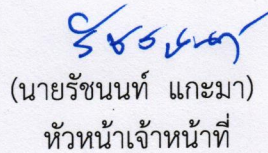 (นายรัชนนท์ แกะมา)
หัวหน้าเจ้าหน้าที่